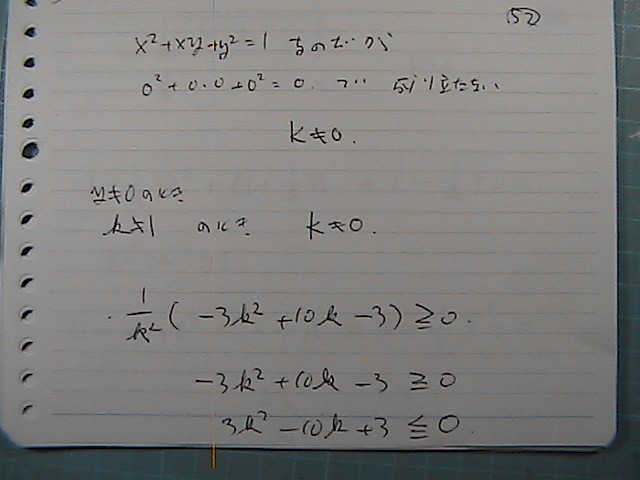 (52)
x²+xy+y²=1 なのだが
0²+0・0+0²=0. で 成り立たない
k≠0.
y≠0のとき
k≠1 のとき k≠0.
・1/k² (-3k²+10k-3)≧0.
-3k²+10k-3≧0
3k²-10k+3≦0.